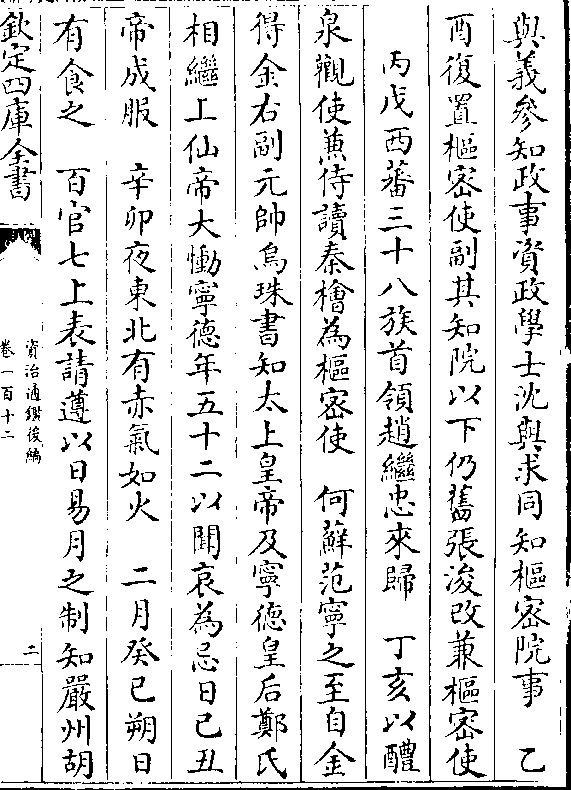 與義參知政事資政學士沈與求同知樞密院事　乙
酉復置樞密使副其知院以下仍舊張浚改兼樞密使
丙戌西蕃三十八族首領趙繼忠來歸　丁亥以醴
泉觀使兼侍讀秦檜為樞密使　何蘚范寧之至自金
得金右副元帥烏珠書知太上皇帝及寧德皇后鄭氏
相繼上仙帝大慟寧德年五十二以聞哀為忌日己丑
帝成服　辛卯夜東北有赤氣如火　二月癸巳朔日
有食之　百官七上表請遵以日易月之制知嚴州胡
欽定四庫全書
資治通鑑後編
卷一百十二
二